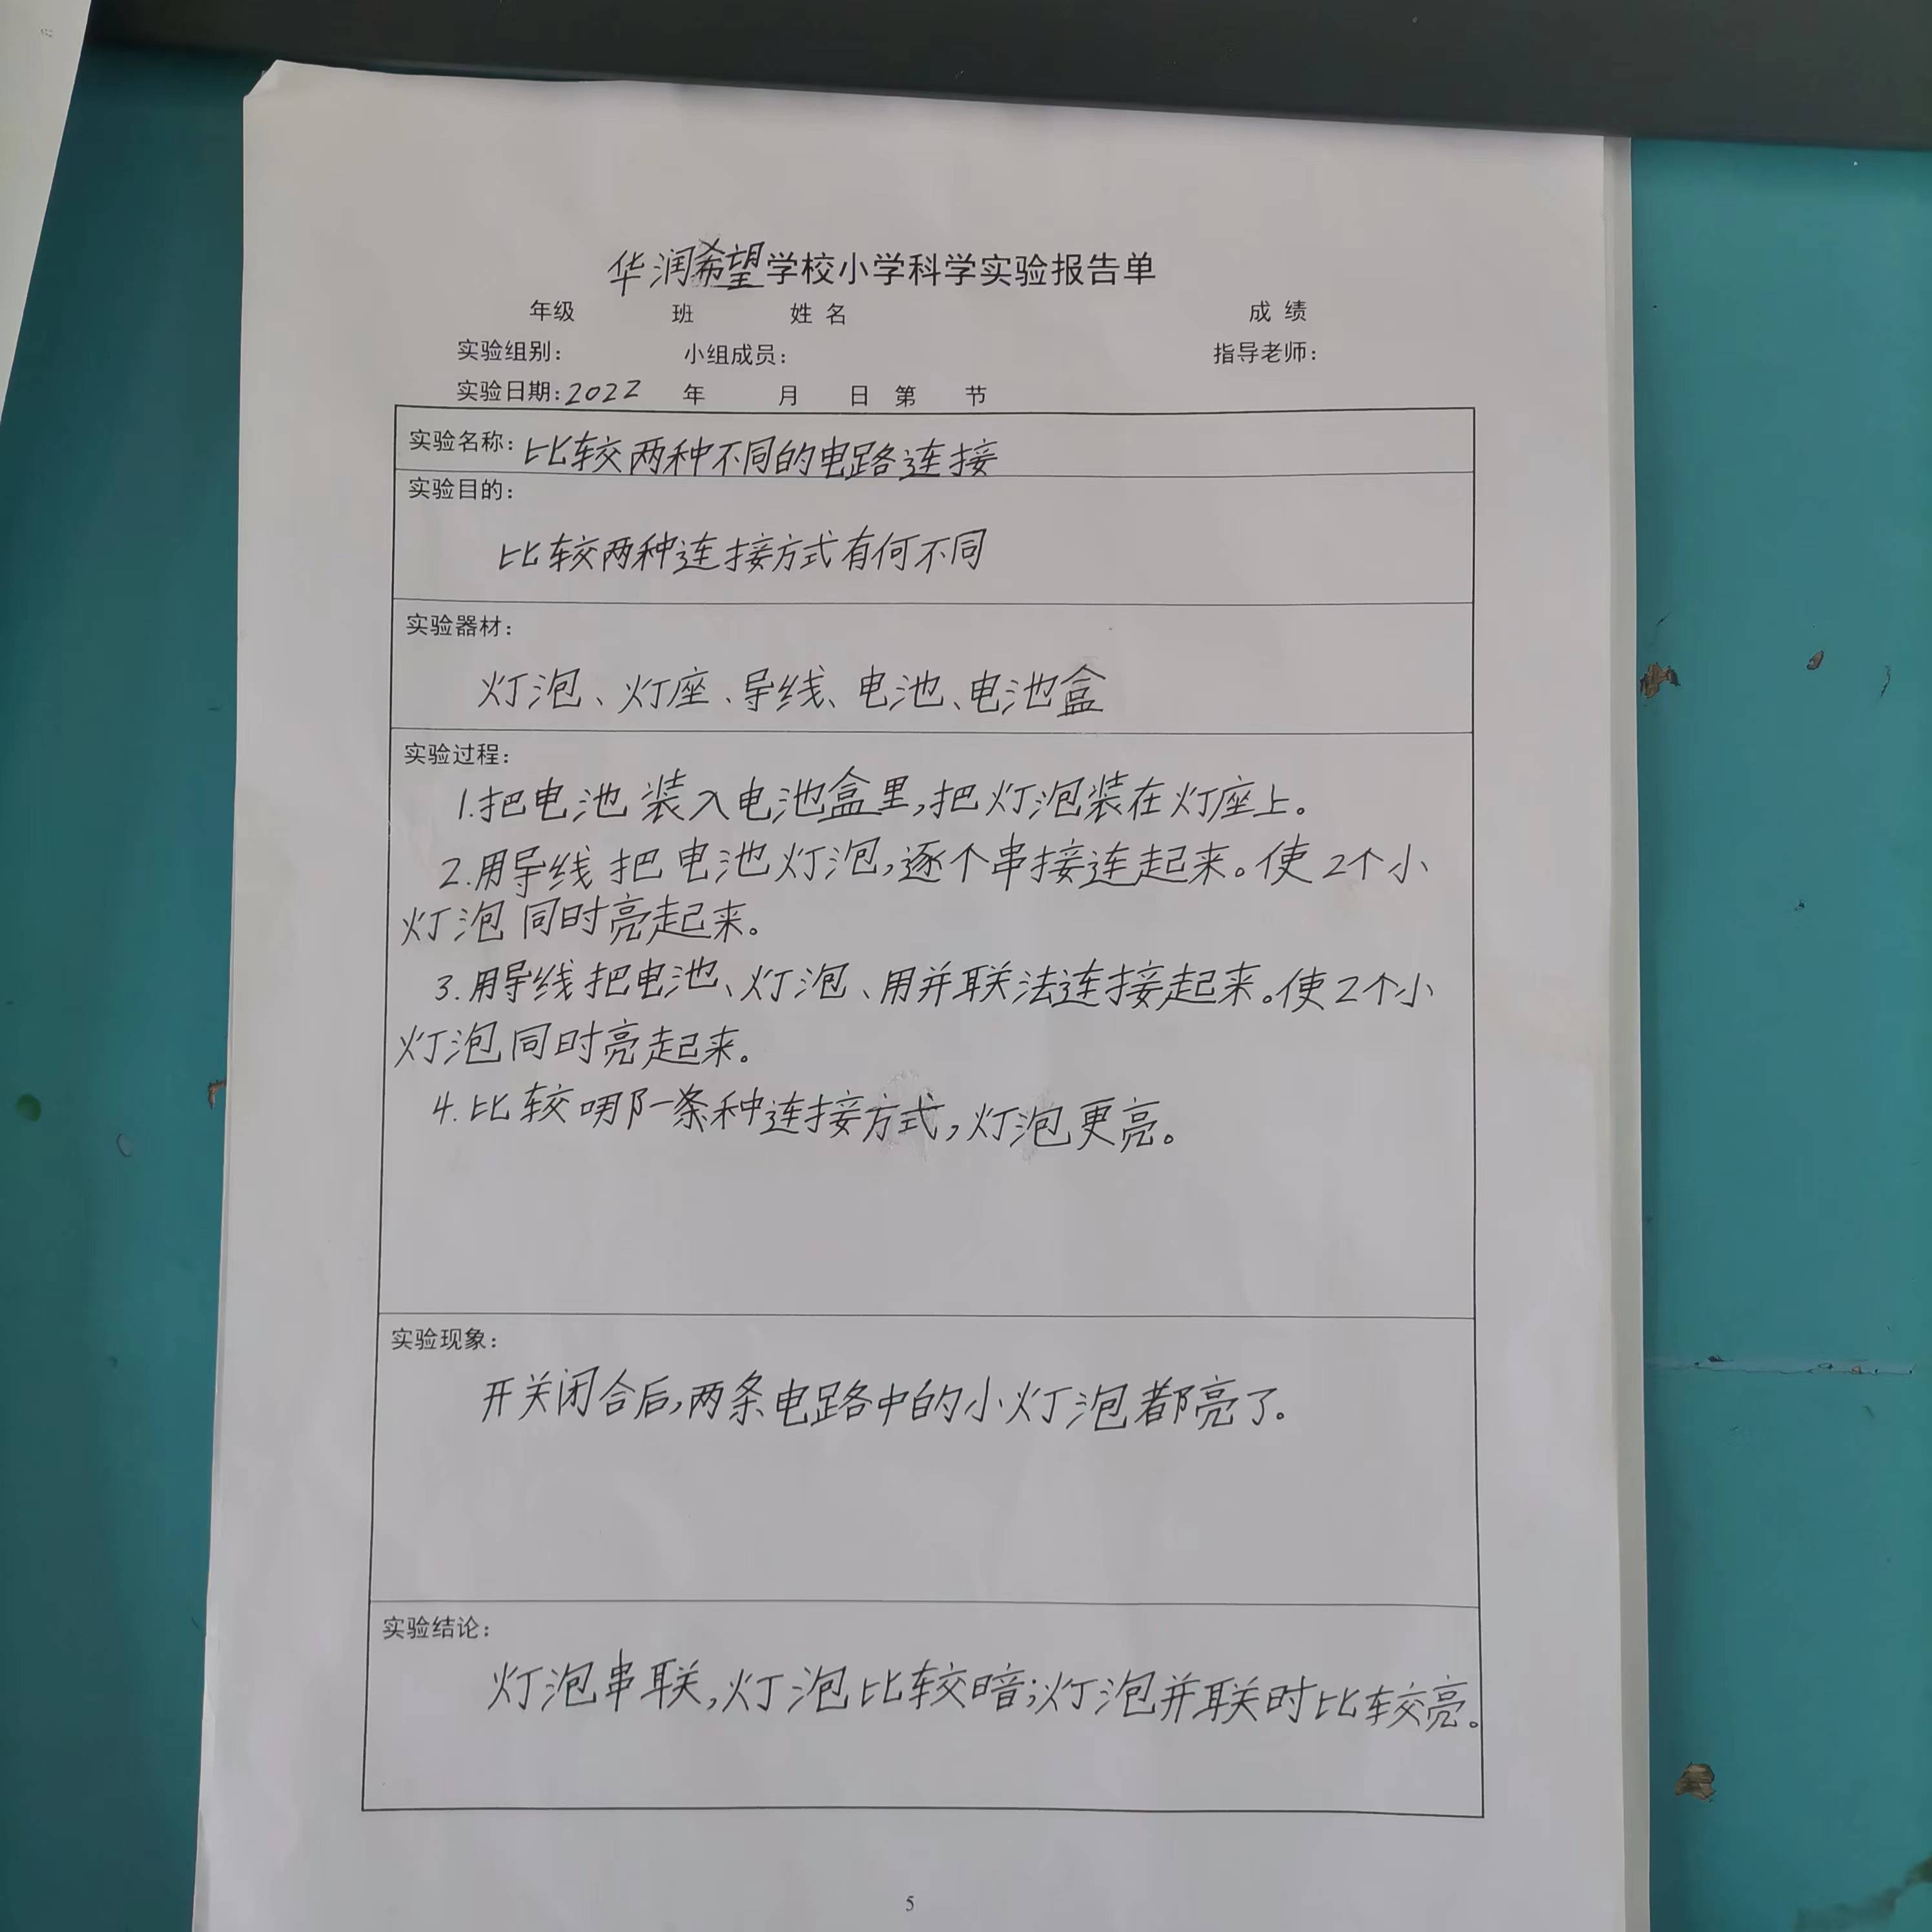 华润希望学校小学科学实验报告单
年级 班 姓名 成绩
实验组别： 小组成员： 指导老师：
实验日期：2022 年 月 日 第 节
实验名称：比较两种不同的电路连接
实验目的：
比较两种连接方式有何不同
实验器材：
灯泡、灯座、导线、电池、电池盒
实验过程：
1.把电池装入电池盒里,把灯泡装在灯座上。
2.用导线把电池灯泡,逐个串接连起来。使2个小
灯泡同时亮起来。
3.用导线把电池、灯泡、用并联法连接起来。使2个小
灯泡同时亮起来。
4.比较哪一条种连接方式,灯泡更亮。
实验现象：
开关闭合后,两条电路中的小灯泡都亮了。
实验结论：
灯泡串联,灯泡比较暗;灯泡并联时比较亮。
5